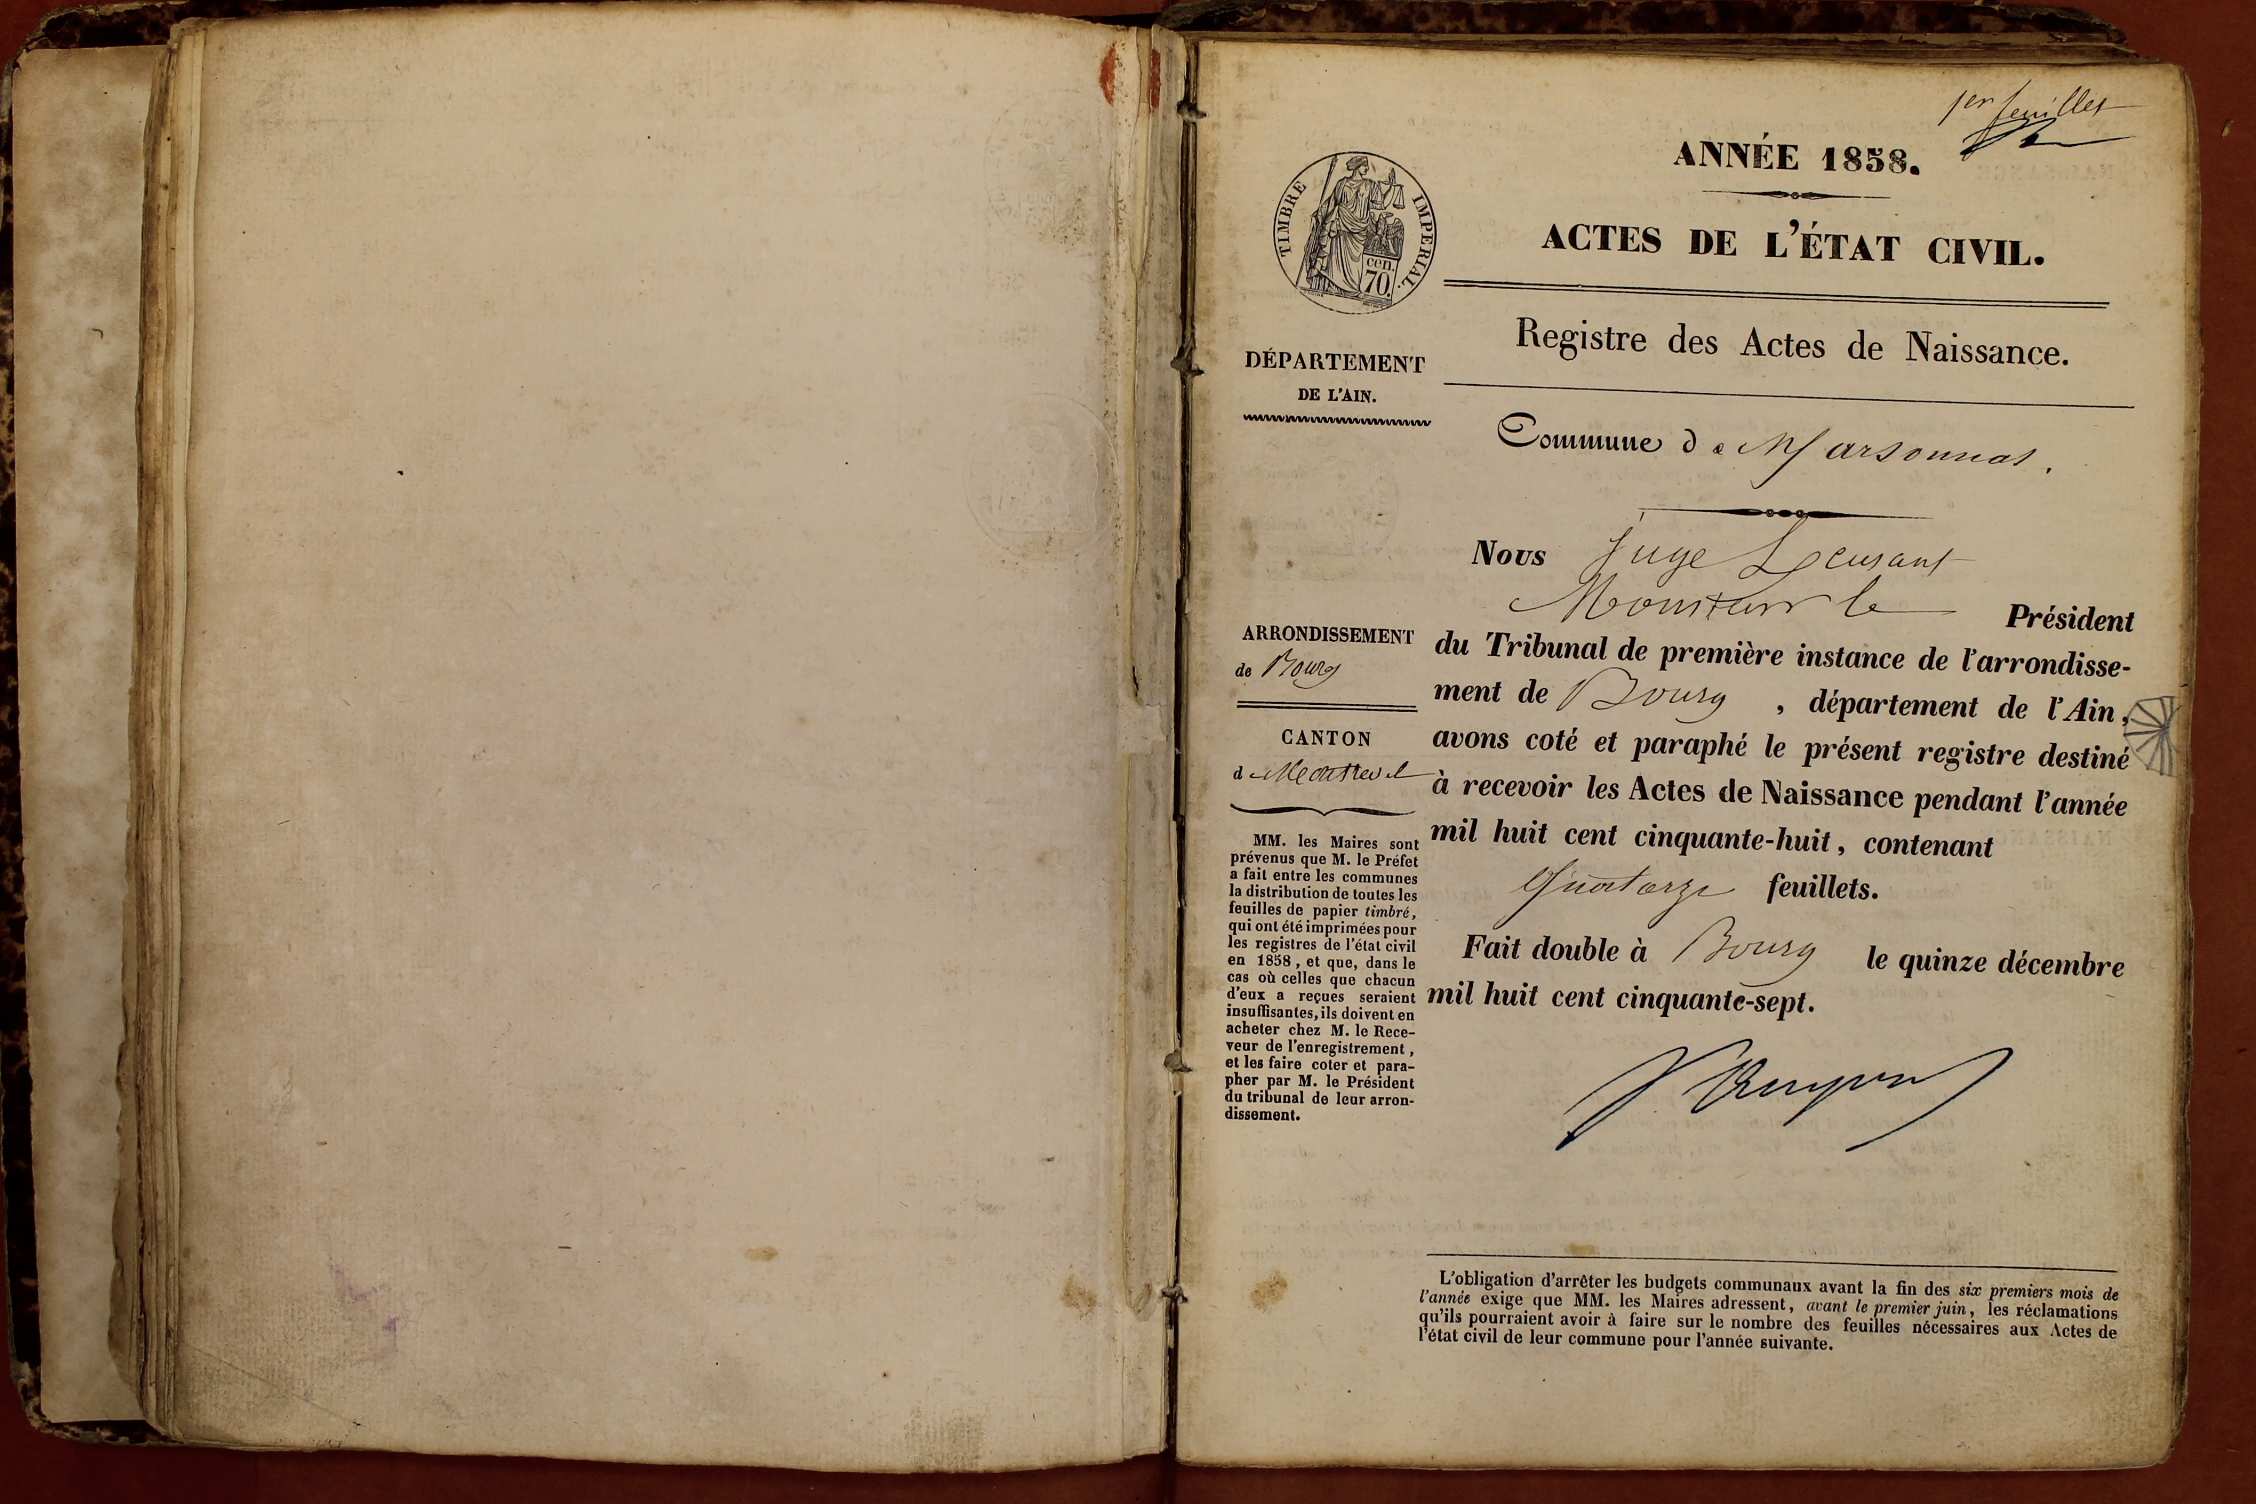 1er feuillet
ANNÉE 1858.
ACTES DE L'ÉTAT CIVIL.
TIMBRE IMPERIAL.
cen.
70.
Registre des Actes de Naissance.
DÉPARTEMENT
DE L'AIN.
Commune de Marsonnas.
Nous Juge
Monsieur le Président
du Tribunal de première instance de l'arrondisse-
ment de Bourg, département de l'Ain,
avons coté et paraphé le présent registre destiné
à recevoir les Actes de Naissance pendant l'année
mil huit cent cinquante-huit, contenant
Quatorze feuillets.
Fait double à Bourg le quinze décembre
mil huit cent cinquante-sept.
ARRONDISSEMENT
de Bourg
CANTON
de Montrevel
MM. les Maires sont
prévenus que M. le Préfet
a fait entre les communes
la distribution de toutes les
feuilles de papier timbré,
qui ont été imprimées pour
les registres de l'état civil
en 1858, et que, dans le
cas où celles que chacun
d'eux a reçues seraient
insuffisantes, ils doivent en
acheter chez M. le Rece-
veur de l'enregistrement,
et les faire coter et para-
pher par M. le Président
du tribunal de leur arron-
dissement.
L'obligation d'arrêter les budgets communaux avant la fin des six premiers mois de
l'année exige que MM. les Maires adressent, avant le premier juin, les réclamations
qu'ils pourraient avoir à faire sur le nombre des feuilles nécessaires aux Actes de
l'état civil de leur commune pour l'année suivante.